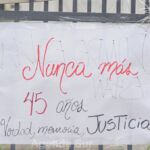 Nunca más
45 años
Verdad, memoria, JUSTICIA